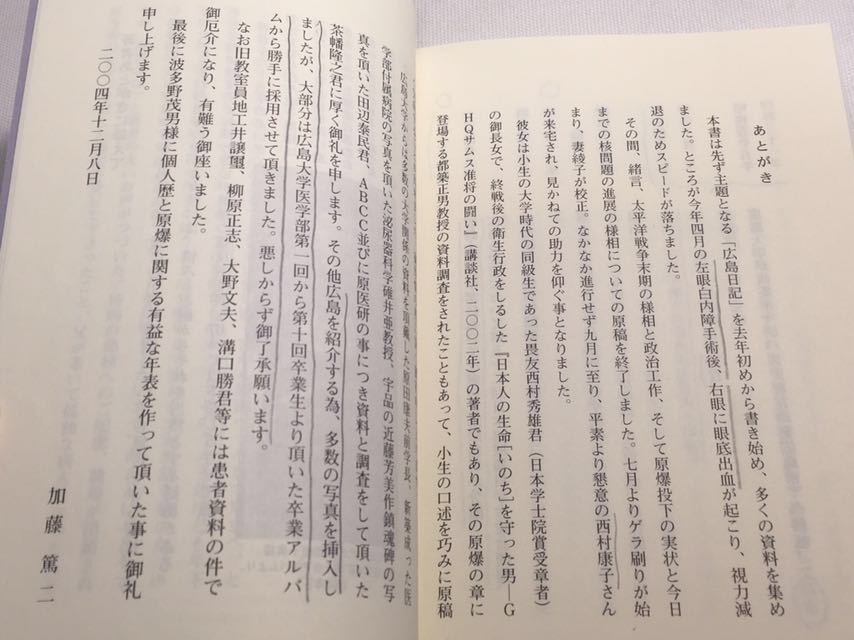 あとがき
本書は先ず主題となる「広島日記」を去年初めから書き始め、多くの資料を集め
ました。ところが今年四月の左眼白内障手術後、右眼に眼底出血が起こり、視力減
退のためスピードが落ちました。
その間、緒言、太平洋戦争末期の様相と政治工作、そして原爆投下の実状と今日
までの核問題の進展の様相についての原稿を終了しました。七月よりゲラ刷りが始
まり、妻綾子が校正。なかなか進行せず九月に至り、平素より懇意の西村康子さん
が来宅され、見かねての助力を仰ぐ事となりました。
彼女は小生の大学時代の同級生であった畏友西村秀雄君(日本学士院賞受章者)
の御長女で、終戦後の衛生行政をしるした『日本人の生命[いのち]を守った男―G
HQサムス准将の闘い』(講談社、二〇〇二年)の著者でもあり、その原爆の章に
登場する都築正男教授の資料調査をされたこともあって、小生の口述を巧みに原稿
広島大学からは多数の大学関係の資料を頂戴した原田康夫前学長、新築成った医
学部付属病院の写真を頂いた泌尿器科学碓井亜教授、宇品の近藤芳美作鎮魂碑の写
真を頂いた田辺泰民君、ABCC並びに原医研の事につき資料と調査をして頂いた
茶幡隆之君に厚く御礼を申します。その他広島を紹介する為、多数の写真を挿入し
ましたが、大部分は広島大学医学部第一回から第十回卒業生より頂いた卒業アルバ
ムから勝手に採用させて頂きました。悪しからず御了承願います。
なお旧教室員地工井讓璽、柳原正志、大野文夫、溝口勝君等には患者資料の件で
御厄介になり、有難う御座いました。
最後に波多野茂男様に個人歴と原爆に関する有益な年表を作って頂いた事に御礼
申し上げます。
二〇〇四年十二月八日
加藤篤二